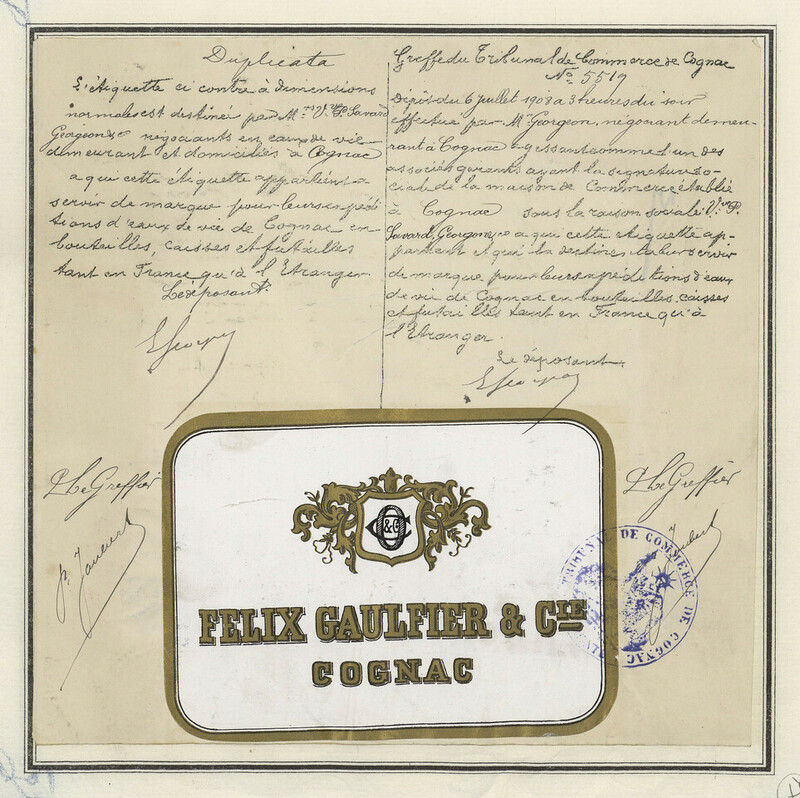 Duplicata
L'étiquette ci contre à dimensions
normales est destiné par Mrs Vve P. Savard
Georgeon & Ce négociants en eaux de vie
demeurant et domiciliés à Cognac
a qui cette étiquette appartient a
servir de marque pour leurs expédi
tions d'eaux de vie de Cognac en
bouteilles, caisses et futailles
tant en France qu'à l'Etranger
Le déposant.
Greffe du Tribunal de Commerce de Cognac
No 5519
Dépôt du 6 juillet 1908 a 3 heures du soir
effectué par Mr Georgeon, négociant demeu-
rant à Cognac agissant comme l'un des
associés gérants ayant la signature so-
ciale de la maison de Commerce établie
à Cognac sous la raison sociale: Vve P.
Savard, Georgeon & Ce a qui cette étiquette ap-
partient et qui la destine à servir
de marque pour leurs expéditions d'eaux
de vie de Cognac en bouteilles, caisses
et futailles tant en France qu'à
l'Etranger.
Le déposant.
Le Greffier
Le Greffier
&C
FELIX GAULFIER & CIE
COGNAC
TRIBUNAL DE COMMERCE DE COGNAC